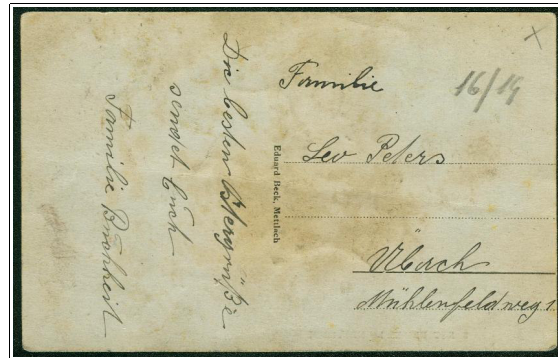 Die besten Ostergrüße
sendet Euch
Familie
Eduard Beck, Mettlach
Familie
16/19
Leo Peters
Übach
Mühlenfeldweg 1